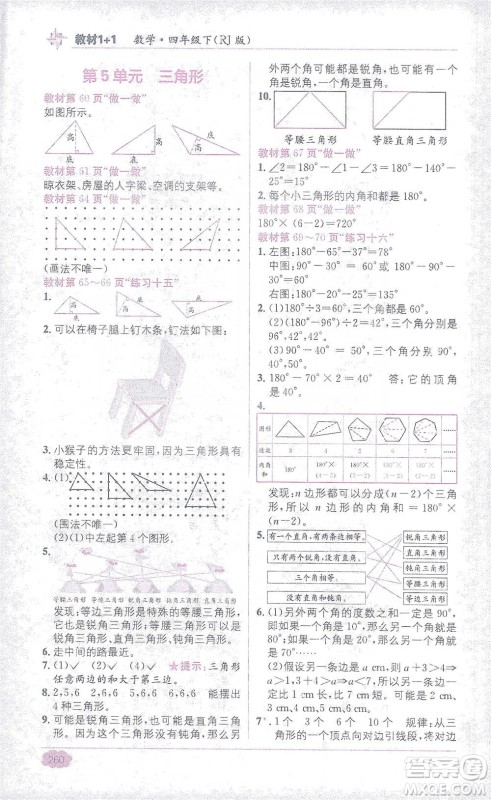 教材1+1 数学·四年级下(RJ版)
第5单元 三角形
教材第60页“做一做”
如图所示。
高 底
高 底
高 底
教材第61页“做一做”
晾衣架、房屋的人字梁、空调的支架等。
教材第64页“做一做”
(画法不唯一)
教材第65~66页“练习十五”
1.
高 底
高 底
底 高
2. 可以在椅子腿上钉木条，钉法如下图：
3. 小猴子的方法更牢固，因为三角形具有
稳定性。
4.
(围法不唯一)
5. (1)中从左起第4个图形。
(2)
等腰三角形 等边三角形
发现：等边三角形是特殊的等腰三角
形。等腰三角形和等边三角形都可以
是锐角三角形、直角三角形、钝角三角形。
6. 走中间的路最近。
7. (1)✓ (2)✓ (4)✓ ★提示：三角形
任意两边的和大于第三边。
8. 2,5,6 2,6,6 5,6,6 2,2,2 能摆出
4种三角形。
9. 可能是锐角三角形，因为直角三角形的
另外两个角可能都是锐角，钝角三角形的
一个角可能是锐角，一个角是直角。
10.
等腰三角形 等腰直角三角形
教材第67页“做一做”
1. ∠2=45° ∠3=45° ∠1=135° ∠2=
25°
2. 180° 每个小三角形的内角和都是180°。
教材第68页“做一做”
180°×(6-2)=720°
教材第69~70页“练习十六”
1. 左图：180°-75°-65°=40°
中图：180°-90°-37°=53°
右图：180°-20°-25°=135°
2. (1)180°÷3=60°，三个角都是60°。
(2)(180°-96°)÷2=42°，三个角分别是
96°，42°，42°。
(3)90°-40°=50°，三个角分别是90°，
40°，50°。
3. 180°-70°×2=40° 答：它的顶角
是40°。
4.
图形 ……
边数 3 4 5 6 7 ……
内角和 180° 180°×(4-2) 180°×(5-2) 180°×(6-2) 180°×(7-2) ……
发现：n边形都可以分成(n-2)个三角
形，所以n边形的内角和就是180°×
(n-2)。
5.
有一个直角，有两条边相等。
只有两个锐角，没有直角。
三个角相等。
没有直角和钝角。
锐角三角形
直角三角形
钝角三角形
等腰三角形
等边三角形
6. (1)另外两个角的度数之和一定是90°，
如果一个角是10°，那么另一个角就是
80°；如果一个角是20°，那么另一个角就
是70°……
(2)假设另一条边是a cm，则a+3>4⇒
a>1，3+4>a⇒a<7。所以另一条边
要大于1 cm，小于7 cm。
7*. 1个 3个 6个 10个 规律：从三
角形的一个顶点向对边引线段，将对边
260